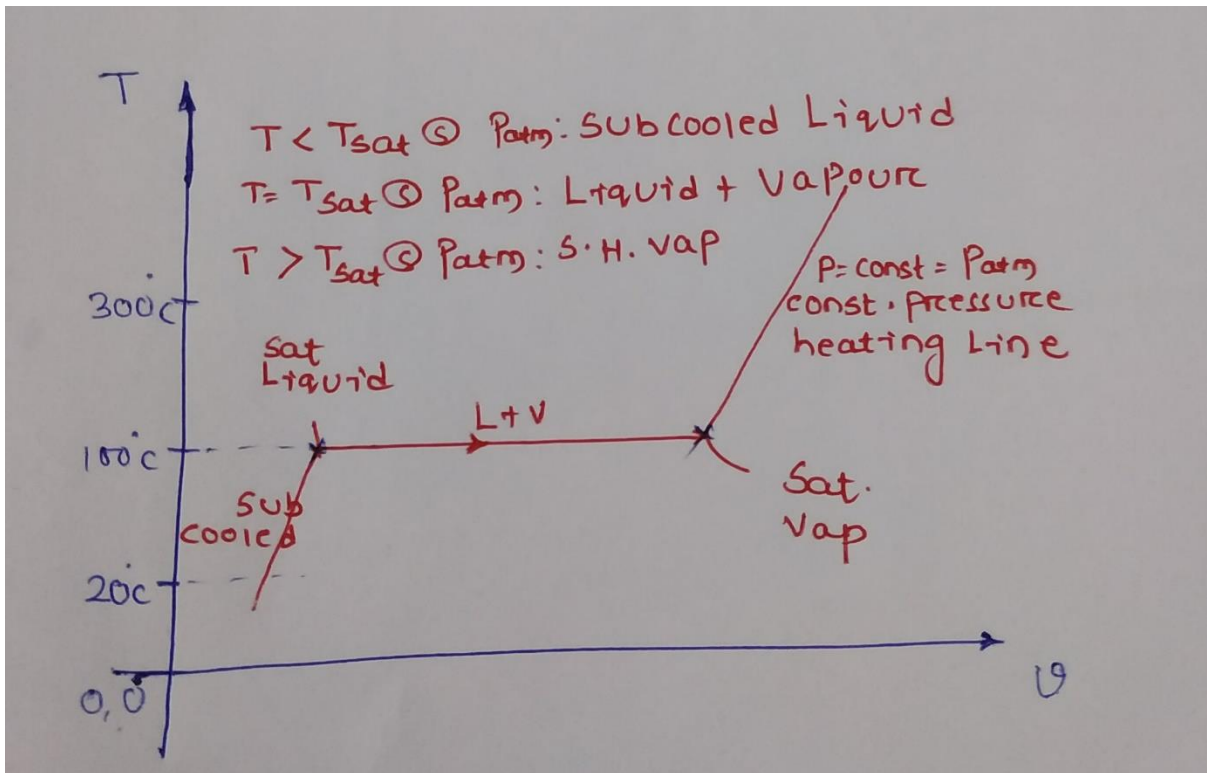 T
T < Tsat @ Patm: Subcooled Liquid
T = Tsat @ Patm: Liquid + Vapour
T > Tsat @ Patm: S.H. vap
P = const = Patm
const. pressure
heating Line
300°C
Sat
Liquid
L+V
100°C
Sub
cooled
Sat.
Vap
20°C
0,0
v